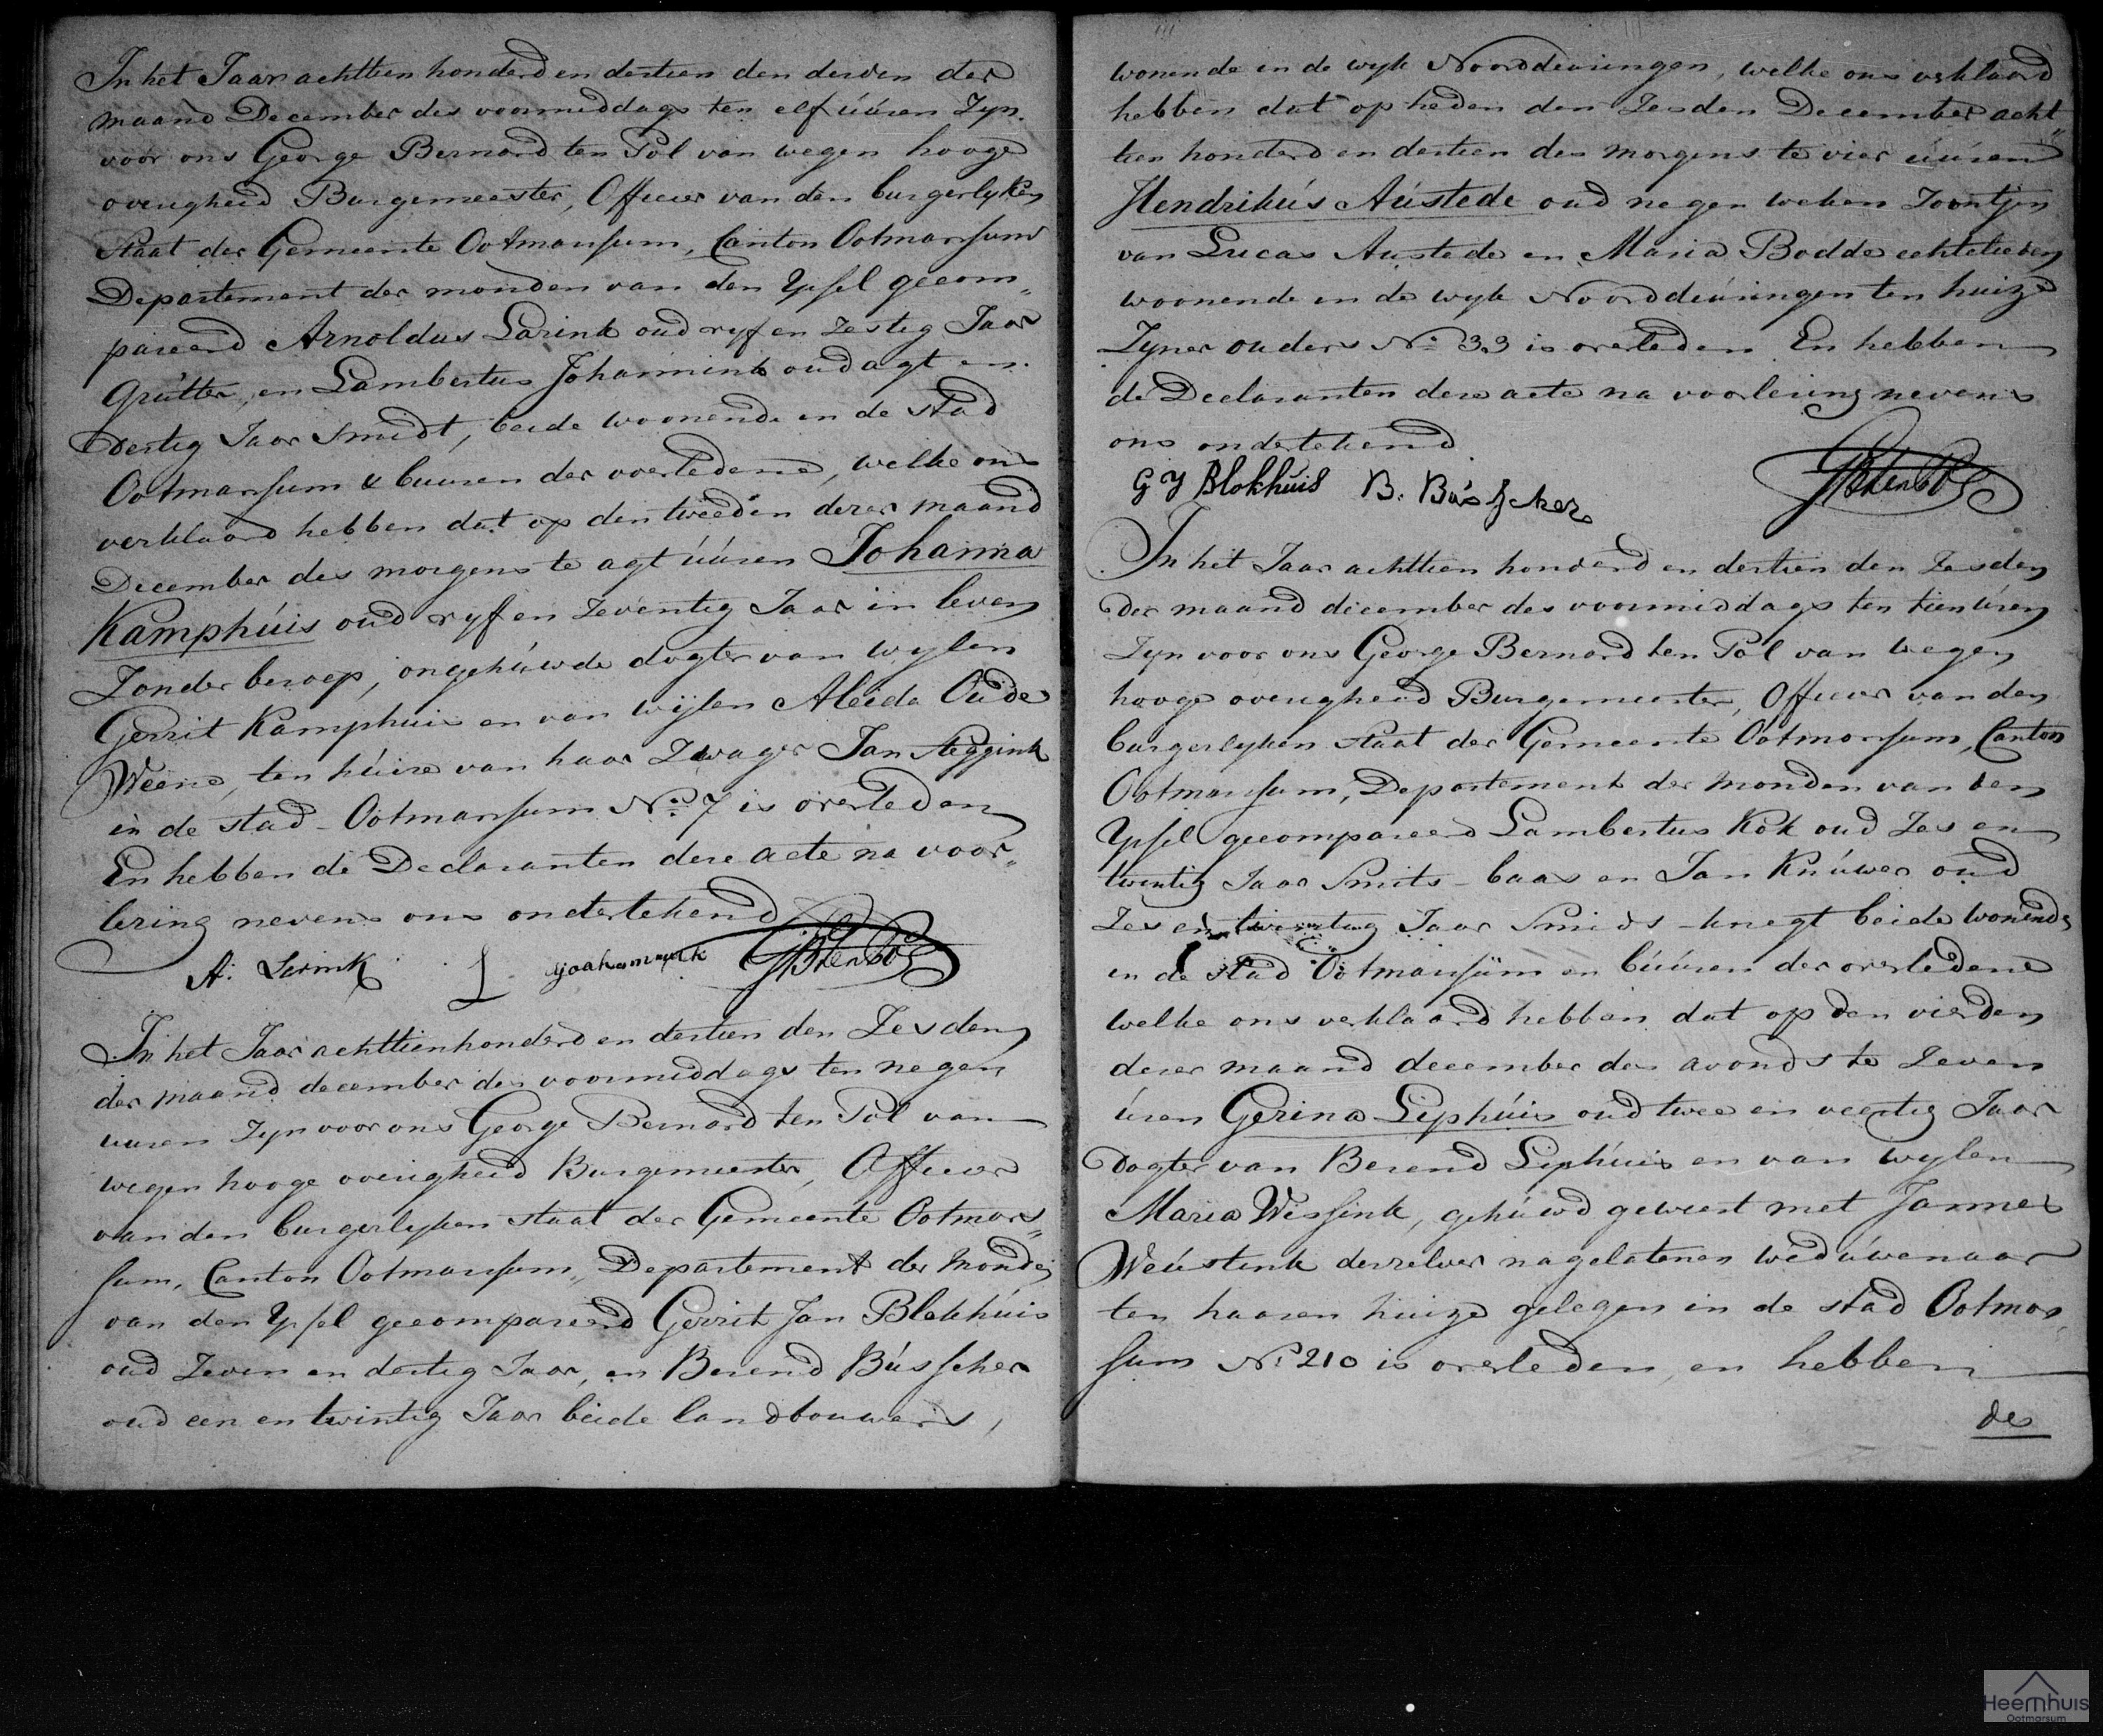 In het Jaar achttien honderd en dertien den derden der
maand December des voormiddags ten elf úúren Zyn
voor ons George Bernard ten Pol van wegen hooge
overigheid Burgemeester, Officier van den burgerlyken
Staat der Gemeente Ootmarsum, Canton Ootmarsum
Departement der monden van den Yssel gecom„
pareerd Arnoldus Larink oud vyf en Zestig Jaar
Grútter, en Lambertus Johannink oud agt en
dertig Jaar Smidt, beide woonende in de stad
Ootmarsum & buuren der overledene, welke ons
verklaard hebben dat op den tweeden dezer maand
December des morgens te agt úúren Johanna
Kamphúis oud vyf en Zeventig Jaar in leven
Zonder beroep, ongehúwde dogter van wylen
Gerrit Kamphuis en van wijlen Aleida Oude
Weene, ten húise van haar Zwager Jan Steggink
in de stad Ootmarsum No. 7 is overleden
En hebben de Declaranten dese acte na voor„
lesing nevens ons ondertekend
A. Larink L goahamnynk GBtenPol
In het Jaar achttienhonderd en dertien den Zesden
der maand december des voormiddags ten negen
uuren Zyn voor ons George Bernard ten Pol van
wegen hooge overigheid Burgemeester, Officier
van den burgerlyken staat der Gemeente Ootmars„
sum, Canton Ootmarsum, Departement der Monden
van den Yssel gecompareerd Gerrit Jan Blokhúis
oud Zeven en dertig Jaar, en Berend Bússcher
oud een en twintig Jaar beide landbouwers,
wonende in de wyk Noorddeuringen, welke ons verklaard
hebben dat op heden den Zesden December acht„
tien honderd en dertien des morgens te vier úúren
Hendrikús Aústede oud negen weken Zoontjen
van Lucas Austede en Maria Bodde echtelieden
woonende in de wyk Noorddeúringen ten huize
Zyner ouders No. 33 is overleden En hebben
de Declaranten dese acte na voorlesing nevens
ons ondertekend
G J Blokhuis B. Büsscher GBtenPol
In het Jaar achttien honderd en dertien den Zesden
der maand december des voormiddags ten tien úren
Zyn voor ons George Bernard ten Pol van wegen
hooge overigheid Burgemeester, Officier van den
burgerlyken staat der Gemeente Ootmarsum, Canton
Ootmarsum, Departement der monden van den
Yssel gecompareerd Lambertus Kok oud Zes en
twintig Jaar Smits-baas en Jan Knúwer oud
Zes en twintig Jaar Smids-knegt beide wonende
in de stad Ootmarsum en búúren der overledene
welke ons verklaard hebben dat op den vierden
dezer maand december des avonds te Zeven
úren Gerina Liphúis oud twee en veertig Jaar
Dogter van Berend Liphúis en van wylen
Maria Wessink, gehúwd geweest met Jannes
Weústink deszelver nagelatenen wedúwenaar
ten haaren huize gelegen in de stad Ootmar„
sum No. 210 is overleden, en hebben
de
Heemhuis
Ootmarsum